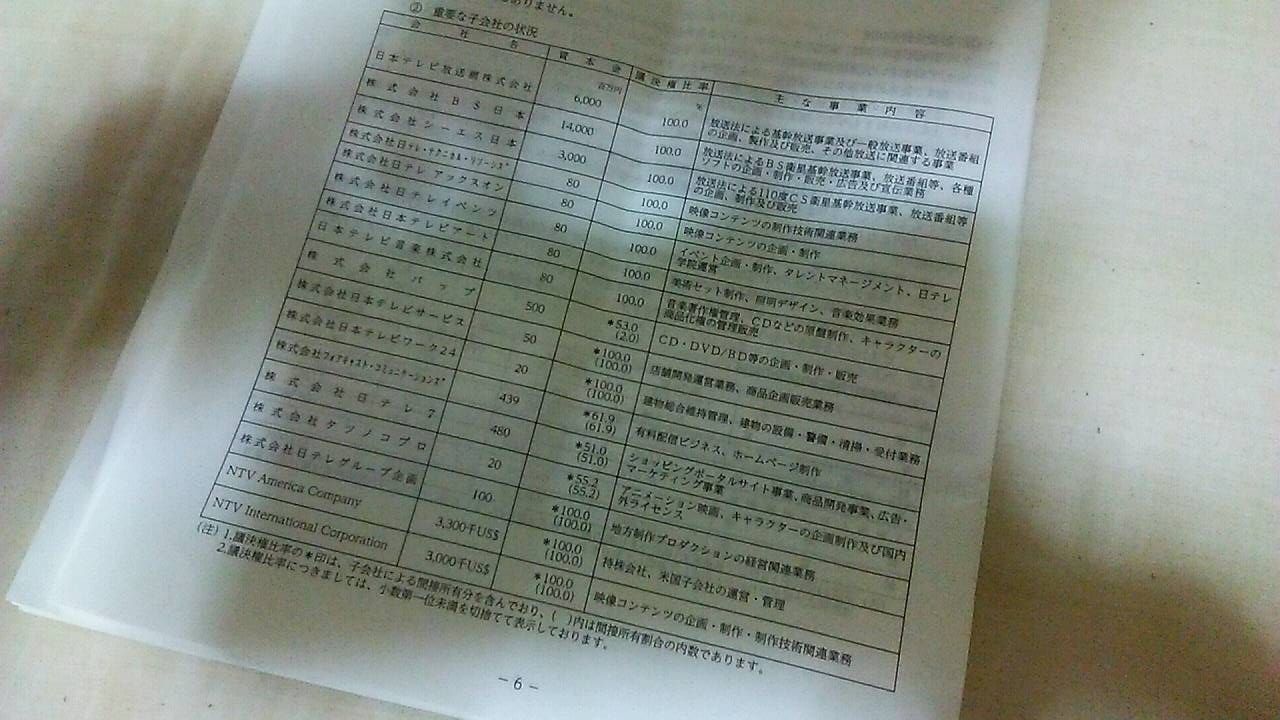 ありません。
② 重要な子会社の状況
会社名 資本金 議決権比率 主な事業内容
百万円 %
日本テレビ放送網株式会社 6,000 100.0 放送法による基幹放送事業及び一般放送事業、放送番組
の企画、製作及び販売、その他放送に関連する事業
株式会社BS日本 14,000 100.0 放送法によるBS衛星基幹放送事業、放送番組等、各種
ソフトの企画・制作・販売・広告及び宣伝業務
株式会社シーエス日本 3,000 100.0 放送法による110度CS衛星基幹放送事業、放送番組等
の企画、制作及び販売
株式会社日テレ・テクニカル・リソーシズ 80 100.0 映像コンテンツの制作技術関連業務
株式会社日テレ アックスオン 80 100.0 映像コンテンツの企画・制作
株式会社日テレイベンツ 80 100.0 イベント企画・制作、タレントマネージメント、日テレ
学院運営
株式会社日本テレビアート 80 100.0 美術セット制作、照明デザイン、音楽効果業務
日本テレビ音楽株式会社 80 100.0 音楽著作権管理、CDなどの原盤制作、キャラクターの
商品化権の管理販売
株式会社バップ 500 *53.0
(2.0) CD・DVD/BD等の企画・制作・販売
株式会社日本テレビサービス 50 *100.0
(100.0) 店舗開発運営業務、商品企画販売業務
株式会社日本テレビワーク24 20 *100.0
(100.0) 建物総合維持管理、建物の設備・警備・清掃・受付業務
株式会社フォアキャスト・コミュニケーションズ 439 *61.9
(61.9) 有料配信ビジネス、ホームページ制作
株式会社日テレ7 480 *51.0
(51.0) ショッピングポータルサイト事業、商品開発事業、広告・
マーケティング事業
株式会社タツノコプロ 20 *55.2
(55.2) アニメーション映画、キャラクターの企画制作及び国内
外ライセンス
株式会社日テレグループ企画 100 *100.0
(100.0) 地方制作プロダクションの経営関連業務
NTV America Company 3,300千US$ *100.0
(100.0) 持株会社、米国子会社の運営・管理
NTV International Corporation 3,000千US$ *100.0
(100.0) 映像コンテンツの企画・制作・制作技術関連業務
(注) 1.議決権比率の*印は、子会社による間接所有分を含んでおり、( )内は間接所有割合の内数であります。
2.議決権比率につきましては、小数第一位未満を切捨てて表示しております。
－6－